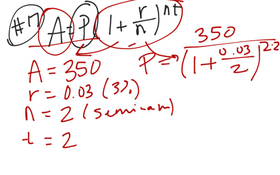 #7 A = P (1 + r/n)^nt
P = 350/(1 + 0.03/2)^2·2
A = 350
r = 0.03 (3%)
n = 2 (semiann)
t = 2